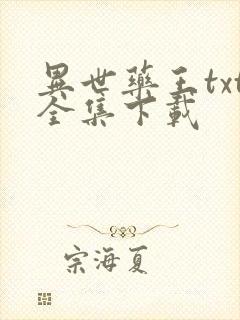 異世藥王txt
全集下載
宗海夏